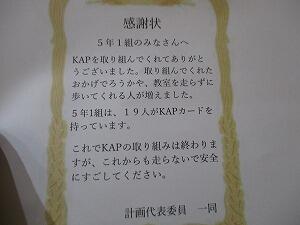 感謝状
５年１組のみなさんへ
KAPを取り組んでくれてありがと
うございました。取り組んでくれた
おかげでろうかや、教室を走らずに
歩いてくれる人が増えました。
５年1組は、１９人がKAPカードを
持っています。
これでKAPの取り組みは終わりま
すが、これからも走らないで安全
にすごしてください。
計画代表委員　一同